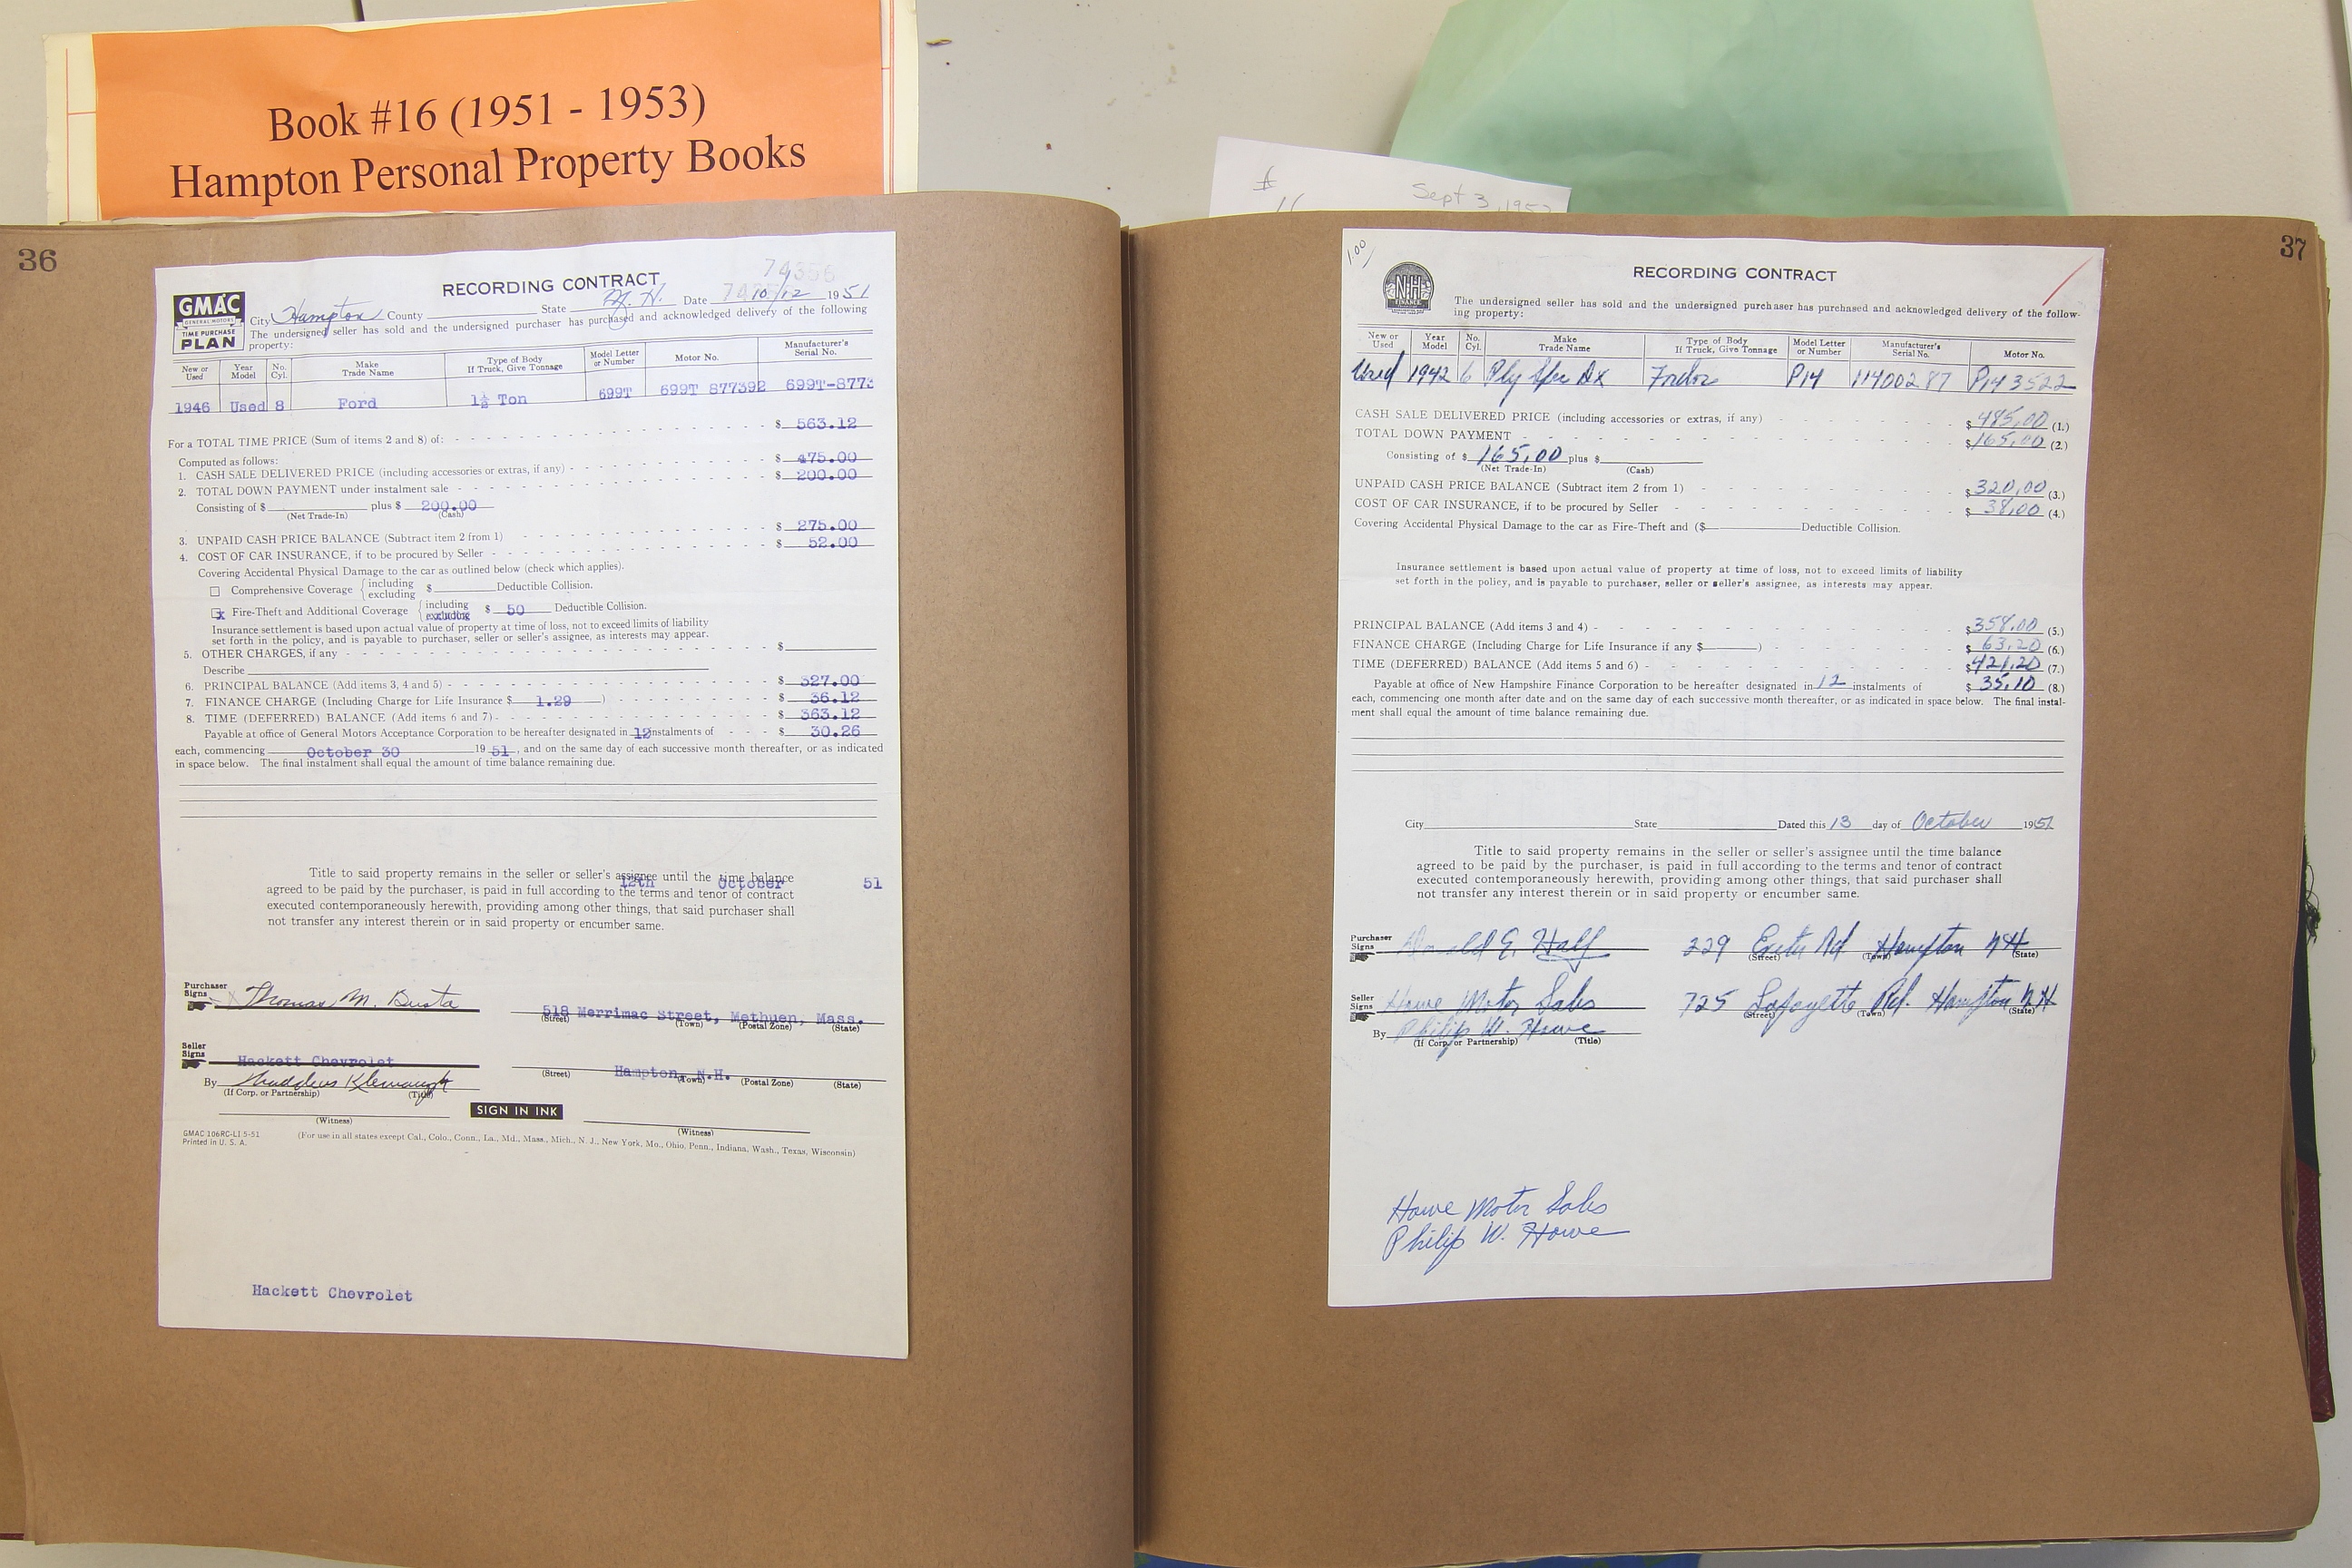 Book #16 (1951 - 1953)
Hampton Personal Property Books
#
16
Sept 3, 195
36
74356
RECORDING CONTRACT
GMAC
GENERAL MOTORS
TIME PURCHASE
PLAN
City Hampton County State N. H. Date 10/12 1951
The undersigned seller has sold and the undersigned purchaser has purchased and acknowledged delivery of the following
property:
New or Used Year Model No. Cyl. Make Trade Name Type of Body If Truck, Give Tonnage Model Letter or Number Motor No. Manufacturer's Serial No.
1946 Used 8 Ford 1½ Ton 699T 699T 877392 699T-877
For a TOTAL TIME PRICE (Sum of items 2 and 8) of: $ 563.12
Computed as follows:
1. CASH SALE DELIVERED PRICE (including accessories or extras, if any) $ 475.00
2. TOTAL DOWN PAYMENT under instalment sale $ 200.00
Consisting of $ plus $ 200.00
(Net Trade-In) (Cash)
3. UNPAID CASH PRICE BALANCE (Subtract item 2 from 1) $ 275.00
4. COST OF CAR INSURANCE, if to be procured by Seller $ 52.00
Covering Accidental Physical Damage to the car as outlined below (check which applies).
Comprehensive Coverage { including excluding $ Deductible Collision.
x Fire-Theft and Additional Coverage { including excluding $ 50 Deductible Collision.
Insurance settlement is based upon actual value of property at time of loss, not to exceed limits of liability
set forth in the policy, and is payable to purchaser, seller or seller's assignee, as interests may appear.
5. OTHER CHARGES, if any $
Describe
6. PRINCIPAL BALANCE (Add items 3, 4 and 5) $ 327.00
7. FINANCE CHARGE (Including Charge for Life Insurance $ 1.29 ) $ 36.12
8. TIME (DEFERRED) BALANCE (Add items 6 and 7) $ 363.12
Payable at office of General Motors Acceptance Corporation to be hereafter designated in 12 instalments of $ 30.26
each, commencing October 30 19 51, and on the same day of each successive month thereafter, or as indicated
in space below. The final instalment shall equal the amount of time balance remaining due.
Title to said property remains in the seller or seller's assignee until the time balance
12th October 51
agreed to be paid by the purchaser, is paid in full according to the terms and tenor of contract
executed contemporaneously herewith, providing among other things, that said purchaser shall
not transfer any interest therein or in said property or encumber same.
Purchaser Signs Thomas M. Busta 518 Merrimac Street, Methuen, Mass.
(Street) (Town) (Postal Zone) (State)
Seller Signs Hackett Chevrolet Hampton, N.H.
(Street) (Town) (Postal Zone) (State)
By
(If Corp. or Partnership) (Title)
SIGN IN INK
(Witness) (Witness)
GMAC 106RC-LI 5-51
Printed in U. S. A.
(For use in all states except Cal., Colo., Conn., La., Md., Mass., Mich., N. J., New York, Mo., Ohio, Penn., Indiana, Wash., Texas, Wisconsin)
Hackett Chevrolet
37
1.00
NH
FINANCE
RECORDING CONTRACT
The undersigned seller has sold and the undersigned purchaser has purchased and acknowledged delivery of the follow-
ing property:
New or Used Year Model No. Cyl. Make Trade Name Type of Body If Truck, Give Tonnage Model Letter or Number Manufacturer's Serial No. Motor No.
Used 1942 6 Ply Spec Dx Fordor P14 11400287 P143522
CASH SALE DELIVERED PRICE (including accessories or extras, if any) $ 485.00 (1.)
TOTAL DOWN PAYMENT $ 165.00 (2.)
Consisting of $ 165.00 plus $
(Net Trade-In) (Cash)
UNPAID CASH PRICE BALANCE (Subtract item 2 from 1) $ 320.00 (3.)
COST OF CAR INSURANCE, if to be procured by Seller $ 38.00 (4.)
Covering Accidental Physical Damage to the car as Fire-Theft and ($ Deductible Collision.
Insurance settlement is based upon actual value of property at time of loss, not to exceed limits of liability
set forth in the policy, and is payable to purchaser, seller or seller's assignee, as interests may appear.
PRINCIPAL BALANCE (Add items 3 and 4) $ 358.00 (5.)
FINANCE CHARGE (Including Charge for Life Insurance if any $ ) $ 63.20 (6.)
TIME (DEFERRED) BALANCE (Add items 5 and 6) $ 421.20 (7.)
Payable at office of New Hampshire Finance Corporation to be hereafter designated in 12 instalments of $ 35.10 (8.)
each, commencing one month after date and on the same day of each successive month thereafter, or as indicated in space below. The final instal-
ment shall equal the amount of time balance remaining due.
City State Dated this 13 day of October 1951
Title to said property remains in the seller or seller's assignee until the time balance
agreed to be paid by the purchaser, is paid in full according to the terms and tenor of contract
executed contemporaneously herewith, providing among other things, that said purchaser shall
not transfer any interest therein or in said property or encumber same.
Purchaser Signs Donald E. Half 329 Exeter Rd Hampton NH
(Street) (Town) (State)
Seller Signs Howe Motor Sales 725 Lafayette Rd. Hampton NH
(Street) (Town) (State)
By Philip W. Howe
(If Corp. or Partnership) (Title)
Howe Motor Sales
Philip W. Howe